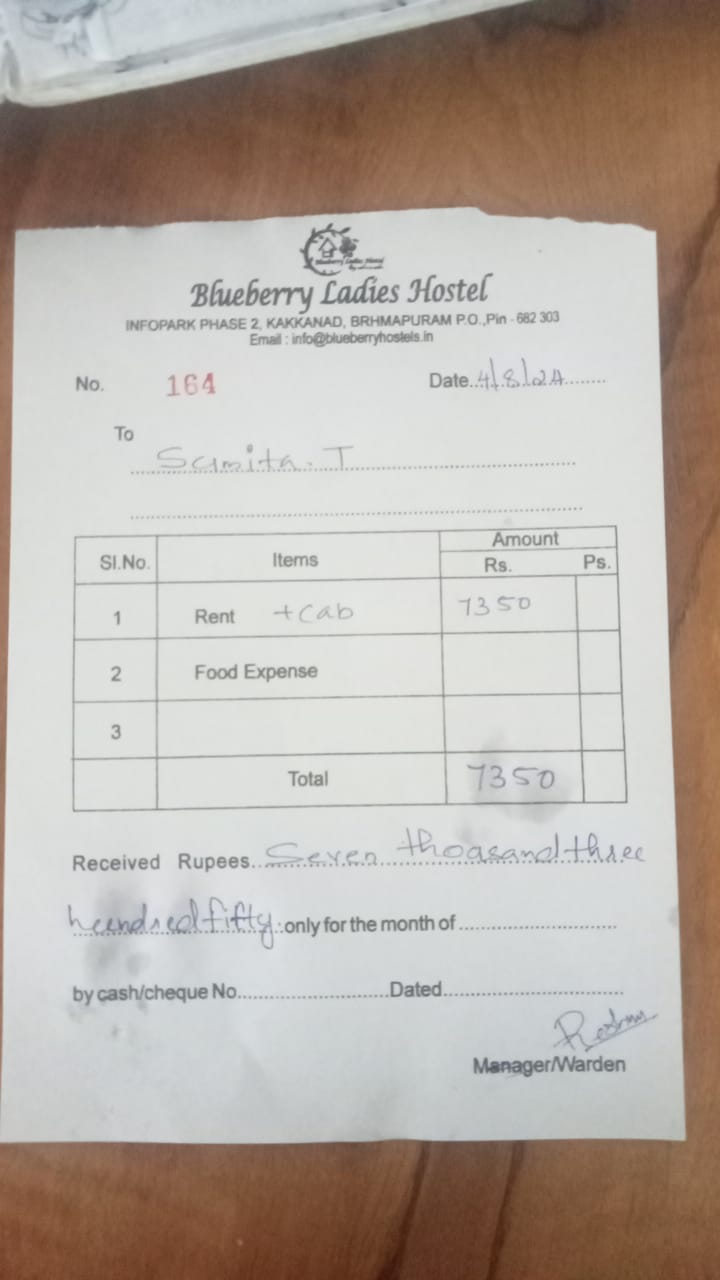 Blueberry Ladies Hostel
INFOPARK PHASE 2, KAKKANAD, BRHMAPURAM P.O.,Pin - 682 303
Email : info@blueberryhostels.in
No. 164 Date..4/8/24........
To
Sumita. T
Amount
Sl.No. Items Rs. Ps.
1 Rent +cab 7350
2 Food Expense
3
Total 7350
Received Rupees..Seven thoasand three
heendred fifty.:only for the month of ..............................
by cash/cheque No.............................Dated...................................
Manager/Warden